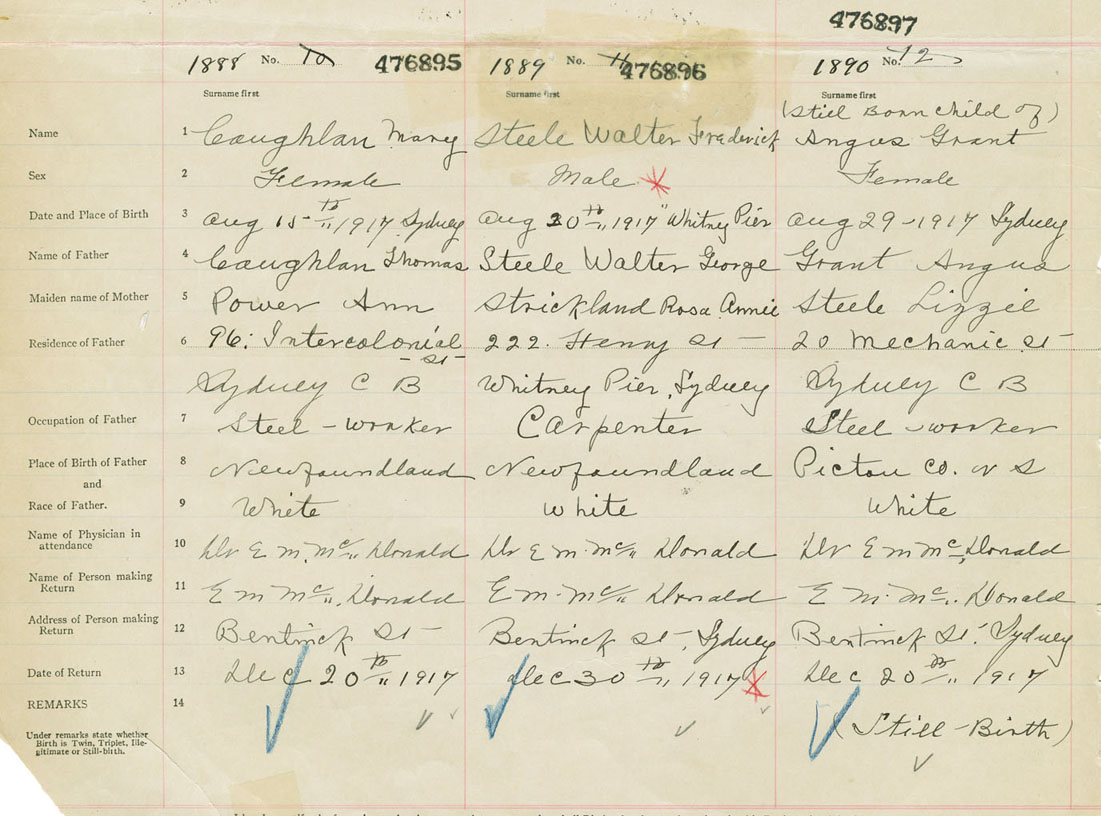 476897
1888 No. 10 476895 1889 No. 11 476896 1890 No. 12
Surname first Surname first Surname first
(Still Born Child of)
Name 1 Coughlan Mary Steele Walter Frederick Angus Grant
Sex 2 Female Male Female
Date and Place of Birth 3 Aug 15th 1917 Sydney Aug 30th 1917 Whitney Pier Aug 29-1917 Sydney
Name of Father 4 Coughlan Thomas Steele Walter George Grant Angus
Maiden name of Mother 5 Power Ann Strickland Rosa Annie Steele Lizzie
Residence of Father 6 96. Intercolonial St 222. Henry St 20 Mechanic St
Sydney C B Whitney Pier, Sydney Sydney C B
Occupation of Father 7 Steel-worker Carpenter Steel-worker
Place of Birth of Father 8 Newfoundland Newfoundland Pictou Co. N S
and
Race of Father. 9 White White White
Name of Physician in
attendance 10 Dr E M. Mc Donald Dr E M. Mc Donald Dr E M Mc Donald
Name of Person making
Return 11 E M Mc Donald E M. Mc Donald E M. Mc Donald
Address of Person making
Return 12 Bentinck St Bentinck St, Sydney Bentinck St. Sydney
Date of Return 13 Dec 20th 1917 Dec 30th 1917 Dec 20th 1917
REMARKS 14
(Still-Birth)
Under remarks state whether
Birth is Twin, Triplet, Ille-
gitimate or Still-birth.